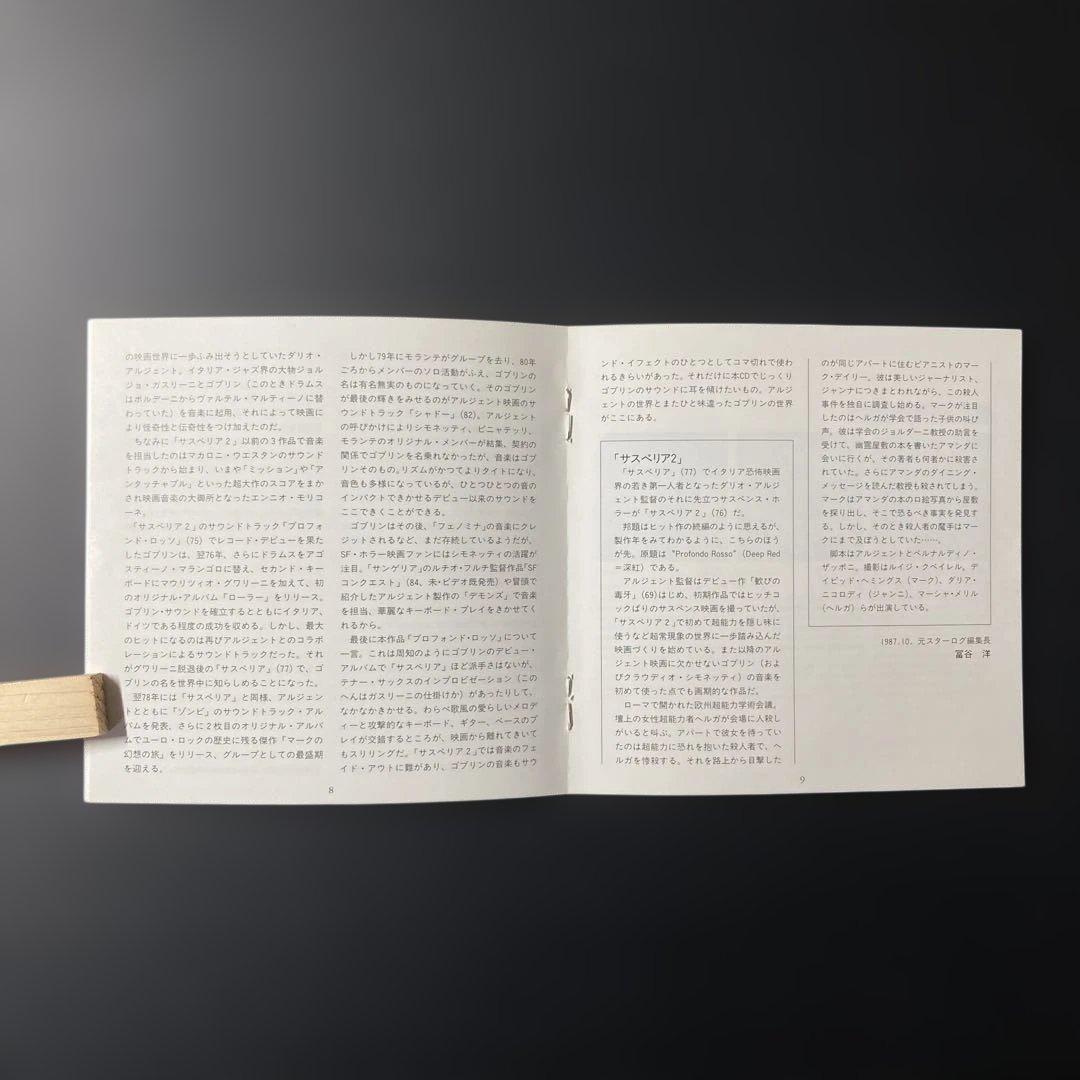 の映画世界に一歩ふみ出そうとしていたダリオ・
アルジェント。イタリア・ジャズ界の大物ジョル
ジョ・ガスリーニとゴブリン（このときドラムス
はボルデーニからヴァルテル・マルティーノに替
わっていた）を音楽に起用、それによって映画に
より怪奇性と伝奇性をつけ加えたのだ。
ちなみに「サスペリア２」以前の３作品で音楽
を担当したのはマカロニ・ウエスタンのサウンド
トラックから始まり、いまや「ミッション」や「ア
ンタッチャブル」といった超大作のスコアをまか
され映画音楽の大御所となったエンニオ・モリコ
ーネ。
「サスペリア２」のサウンドトラック「プロフォ
ンド・ロッソ」（75）でレコード・デビューを果た
したゴブリンは、翌76年、さらにドラムスをアゴ
スティーノ・マランゴロに替え、セカンド・キー
ボードにマウリツィオ・グワリーニを加えて、初
のオリジナル・アルバム「ローラー」をリリース。
ゴブリン・サウンドを確立するとともにイタリア、
ドイツである程度の成功を収める。しかし、最大
のヒットになるのは再びアルジェントとのコラボ
レーションによるサウンドトラックだった。それ
がグワリーニ脱退後の「サスペリア」（77）で、ゴ
ブリンの名を世界中に知らしめることになった。
翌78年には「サスペリア」と同様、アルジェン
トとともに「ゾンビ」のサウンドトラック・アル
バムを発表、さらに２枚目のオリジナル・アルバ
ムでユーロ・ロックの歴史に残る傑作「マークの
幻想の旅」をリリース、グループとしての最盛期
を迎える。
しかし79年にモランテがグループを去り、80年
ごろからメンバーのソロ活動がふえ、ゴブリンの
名は有名無実のものになっていく。そのゴブリン
が最後の輝きをみせるのがアルジェント映画のサ
ウンドトラック「シャドー」（82）。アルジェント
の呼びかけによりシモネッティ、ピニャテッリ、
モランテのオリジナル・メンバーが結集、契約の
関係でゴブリンを名乗れなかったが、音楽はゴブ
リンそのもの。リズムがかつてよりタイトになり、
音色も多様になっているが、ひとつひとつの音の
インパクトできかせるデビュー以来のサウンドを
ここできくことができる。
ゴブリンはその後、「フェノミナ」の音楽にクレ
ジットされるなど、まだ存続しているようだが、
SF・ホラー映画ファンにはシモネッティの活躍が
注目。「サンゲリア」のルチオ・フルチ監督作品「SF
コンクエスト」（84、未・ビデオ既発売）や冒頭で
紹介したアルジェント製作の「デモンズ」で音楽
を担当、華麗なキーボード・プレイをきかせてく
れるから。
最後に本作品「プロフォンド・ロッソ」について
一言。これは周知のようにゴブリンのデビュー・
アルバムで「サスペリア」ほど派手さはないが、
テナー・サックスのインプロビゼーション（この
へんはガスリーニの仕掛けか）があったりして、
なかなかきかせる。わらべ歌風の愛らしいメロデ
ィーと攻撃的なキーボード、ギター、ベースのプ
レイが交錯するところが、映画から離れてきいて
もスリリングだ。「サスペリア２」では音楽のフェ
イド・アウトに難があり、ゴブリンの音楽もサウ
8
ンド・イフェクトのひとつとしてコマ切れで使わ
れるきらいがあった。それだけに本CDでじっくり
ゴブリンのサウンドに耳を傾けたいもの。アルジ
ェントの世界とまたひと味違ったゴブリンの世界
がここにある。
「サスペリア2」
「サスペリア」（77）でイタリア恐怖映画
界の若き第一人者となったダリオ・アルジ
ェント監督のそれに先立つサスペンス・ホ
ラーが「サスペリア２」（76）だ。
邦題はヒット作の続編のように思えるが、
製作年をみてわかるように、こちらのほう
が先。原題は“Profondo Rosso”（Deep Red
＝深紅）である。
アルジェント監督はデビュー作「歓びの
毒牙」（69）はじめ、初期作品ではヒッチコ
ックばりのサスペンス映画を撮っていたが、
「サスペリア２」で初めて超能力を隠し味に
使うなど超常現象の世界に一歩踏み込んだ
映画づくりを始めている。また以降のアル
ジェント映画に欠かせないゴブリン（およ
びクラウディオ・シモネッティ）の音楽を
初めて使った点でも画期的な作品だ。
ローマで開かれた欧州超能力学術会議。
壇上の女性超能力者ヘルガが会場に人殺し
がいると叫ぶ。アパートで彼女を待ってい
たのは超能力に恐れを抱いた殺人者で、ヘ
ルガを惨殺する。それを路上から目撃した
のが同じアパートに住むピアニストのマー
ク・デイリー。彼は美しいジャーナリスト、
ジャンナにつきまとわれながら、この殺人
事件を独自に調査し始める。マークが注目
したのはヘルガが学会で語った子供の叫び
声。彼は学会のジョルダーニ教授の助言を
受けて、幽霊屋敷の本を書いたアマンダに
会いに行くが、その著者も何者かに殺害さ
れていた。さらにアマンダのダイニング・
メッセージを読んだ教授も殺されてしまう。
マークはアマンダの本の口絵写真から屋敷
を探り出し、そこで恐るべき事実を発見す
る。しかし、そのとき殺人者の魔手はマー
クにまで及ぼうとしていた……。
脚本はアルジェントとベルナルディノ・
ザッポニ。撮影はルイジ・クベイレル。デ
イビッド・ヘミングス（マーク）、ダリア・
ニコロディ（ジャンニ）、マーシャ・メリル
（ヘルガ）らが出演している。
1987.10. 元スターログ編集長
冨谷　洋
9